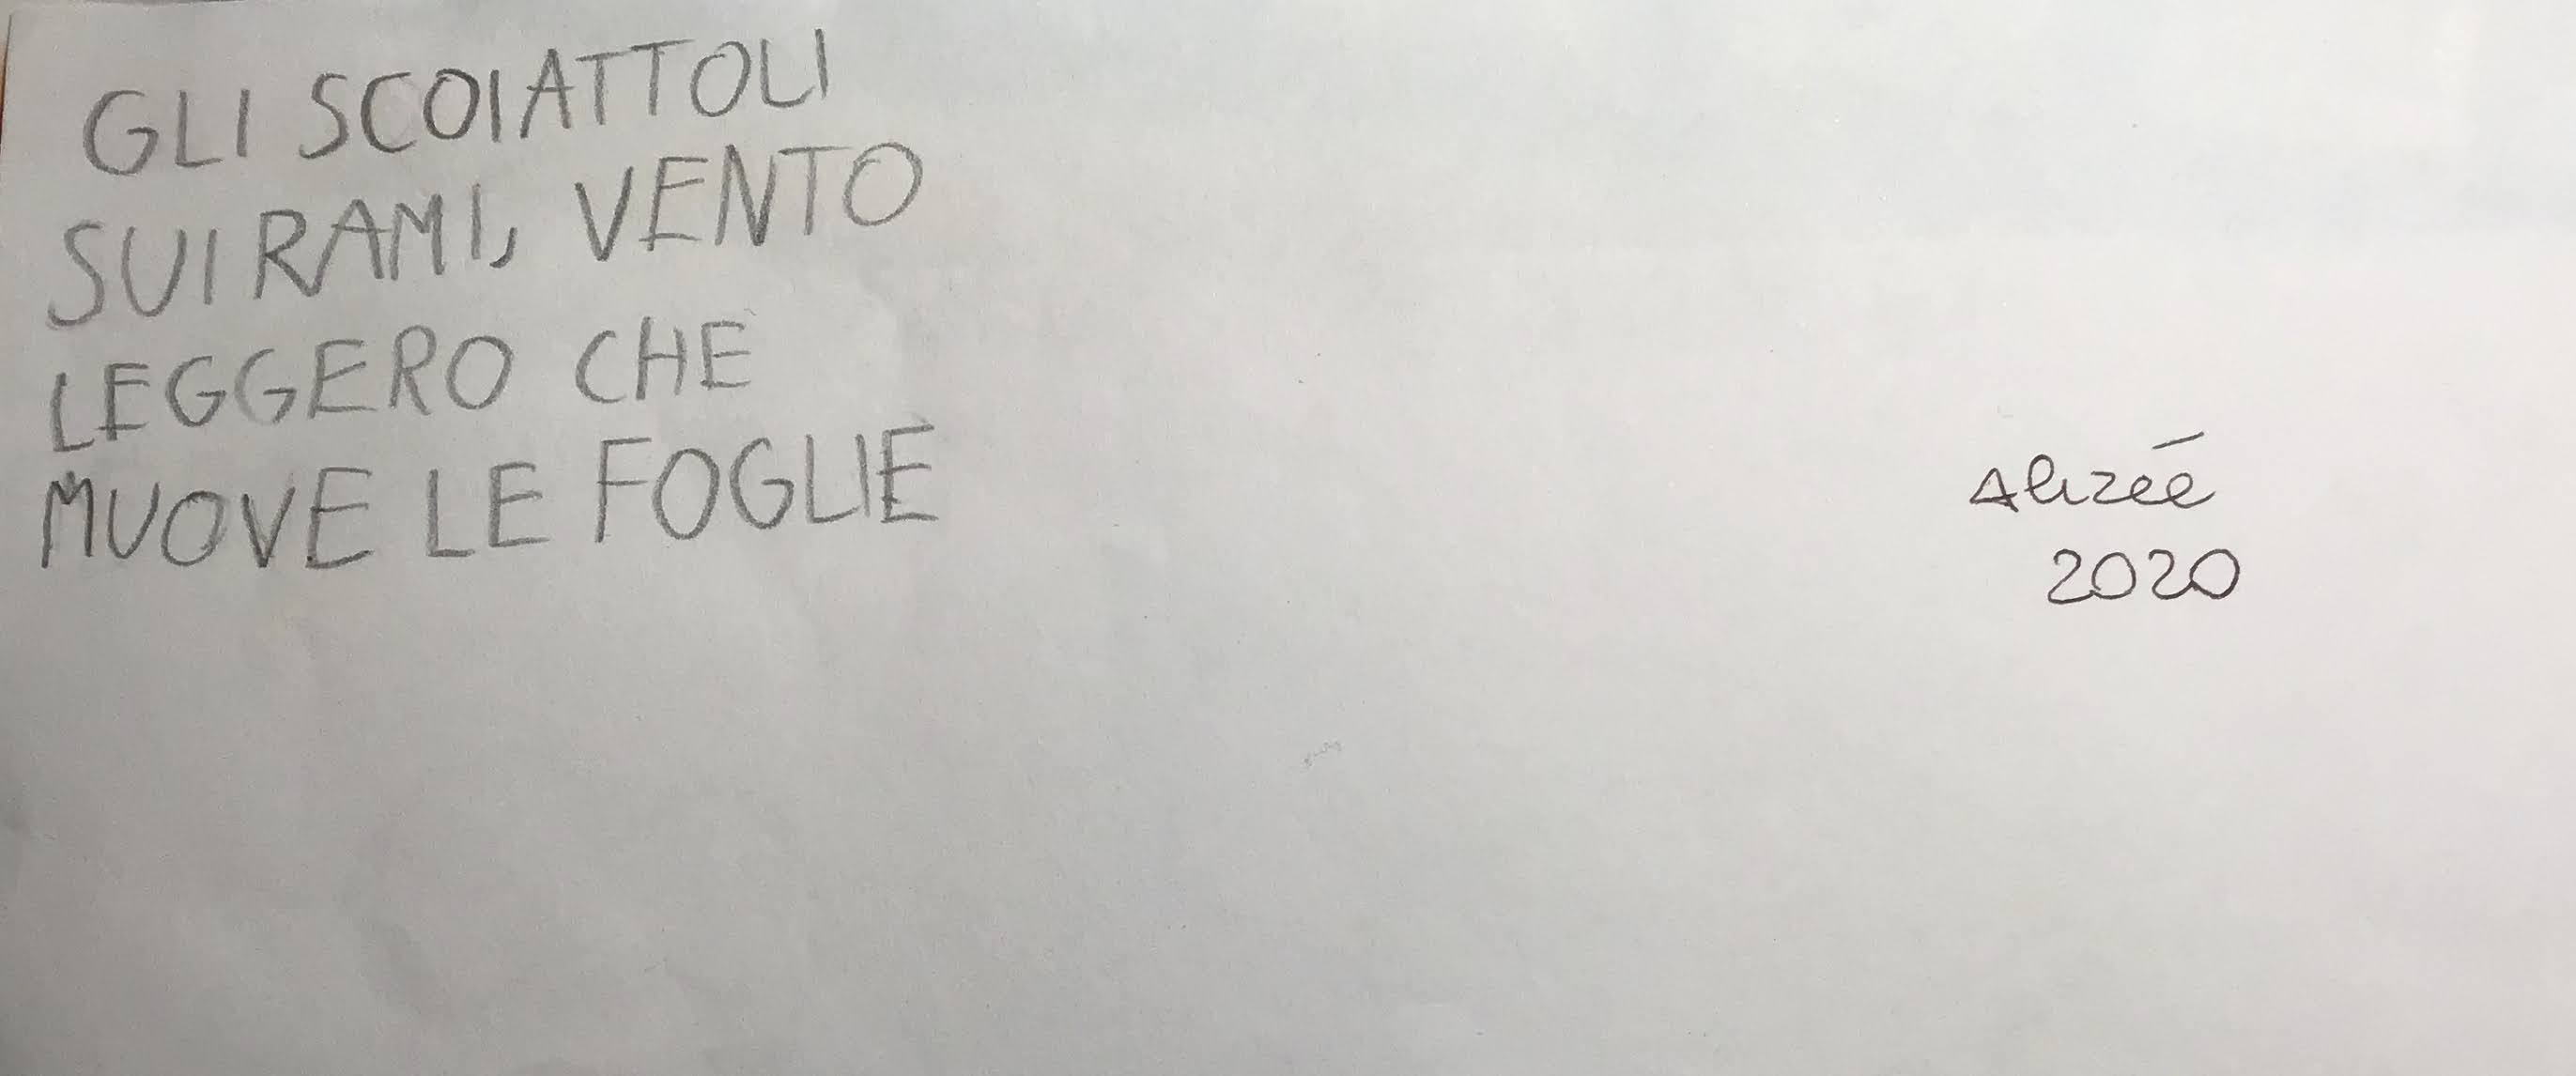 GLI SCOIATTOLI
SUI RAMI, VENTO
LEGGERO CHE
MUOVE LE FOGLIE
Alizée
2020